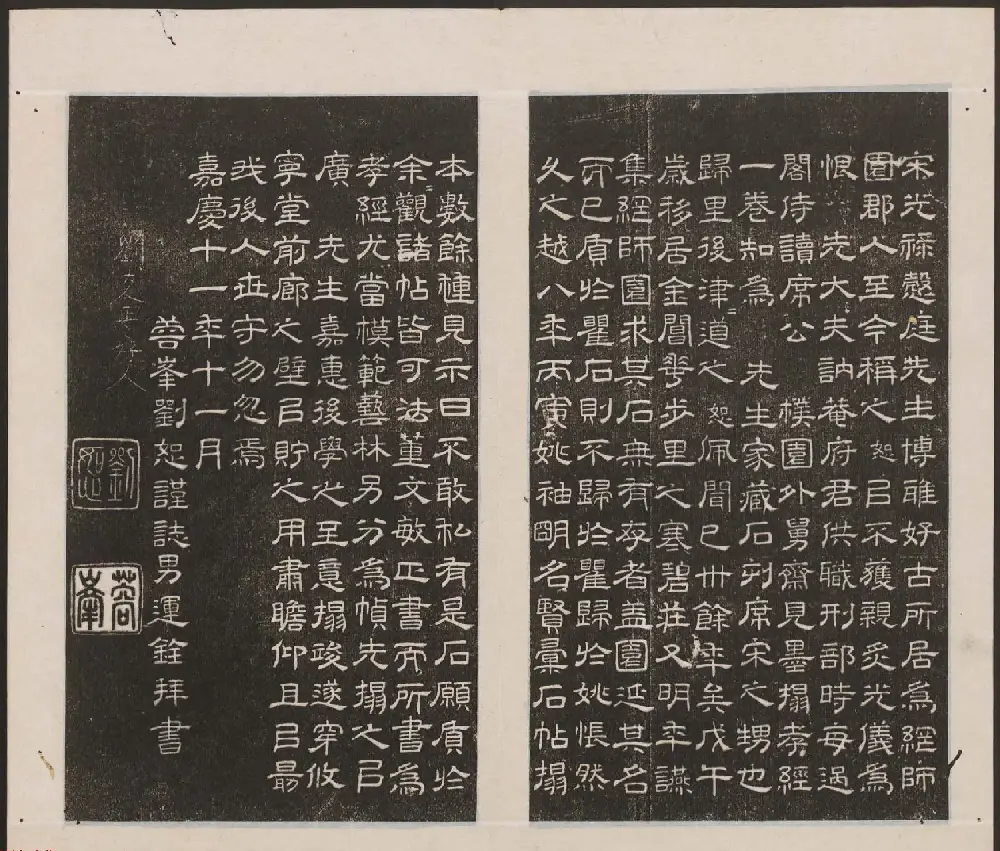 宋光祿慤庭先生博雅好古所居為經師
園郡人至今稱之恕㠯不獲親炙光儀為
恨先大夫訥菴府君供職刑部時每過
閣侍讀席公樸園外舅齋見墨搨孝經
一卷知為先生家藏石刻席宋之甥也
歸里後津〻道之恕佩聞已卅餘年矣戊午
歲移居金閶花步里之寒碧莊又明年讌
集經師園求其石無有存者盖園迹其名
而已質於瞿石則不歸於瞿歸於姚悵然
久之越八年丙寅姚袖明名賢彙石帖搨
本數餘種見示曰不敢私有是石願質於
余〻觀諸帖皆可法董文敏正書而所書為
孝經尤當模範藝林另分為幀先搨之㠯
廣先生嘉惠後學之至意搨竣遂穿攸
寧堂前廊之壁㠯貯之用肅瞻仰且㠯勗
我後人世守勿忽焉
嘉慶十一年十一月
蓉峯劉恕謹誌男運銓拜書
劉恕
蓉峯